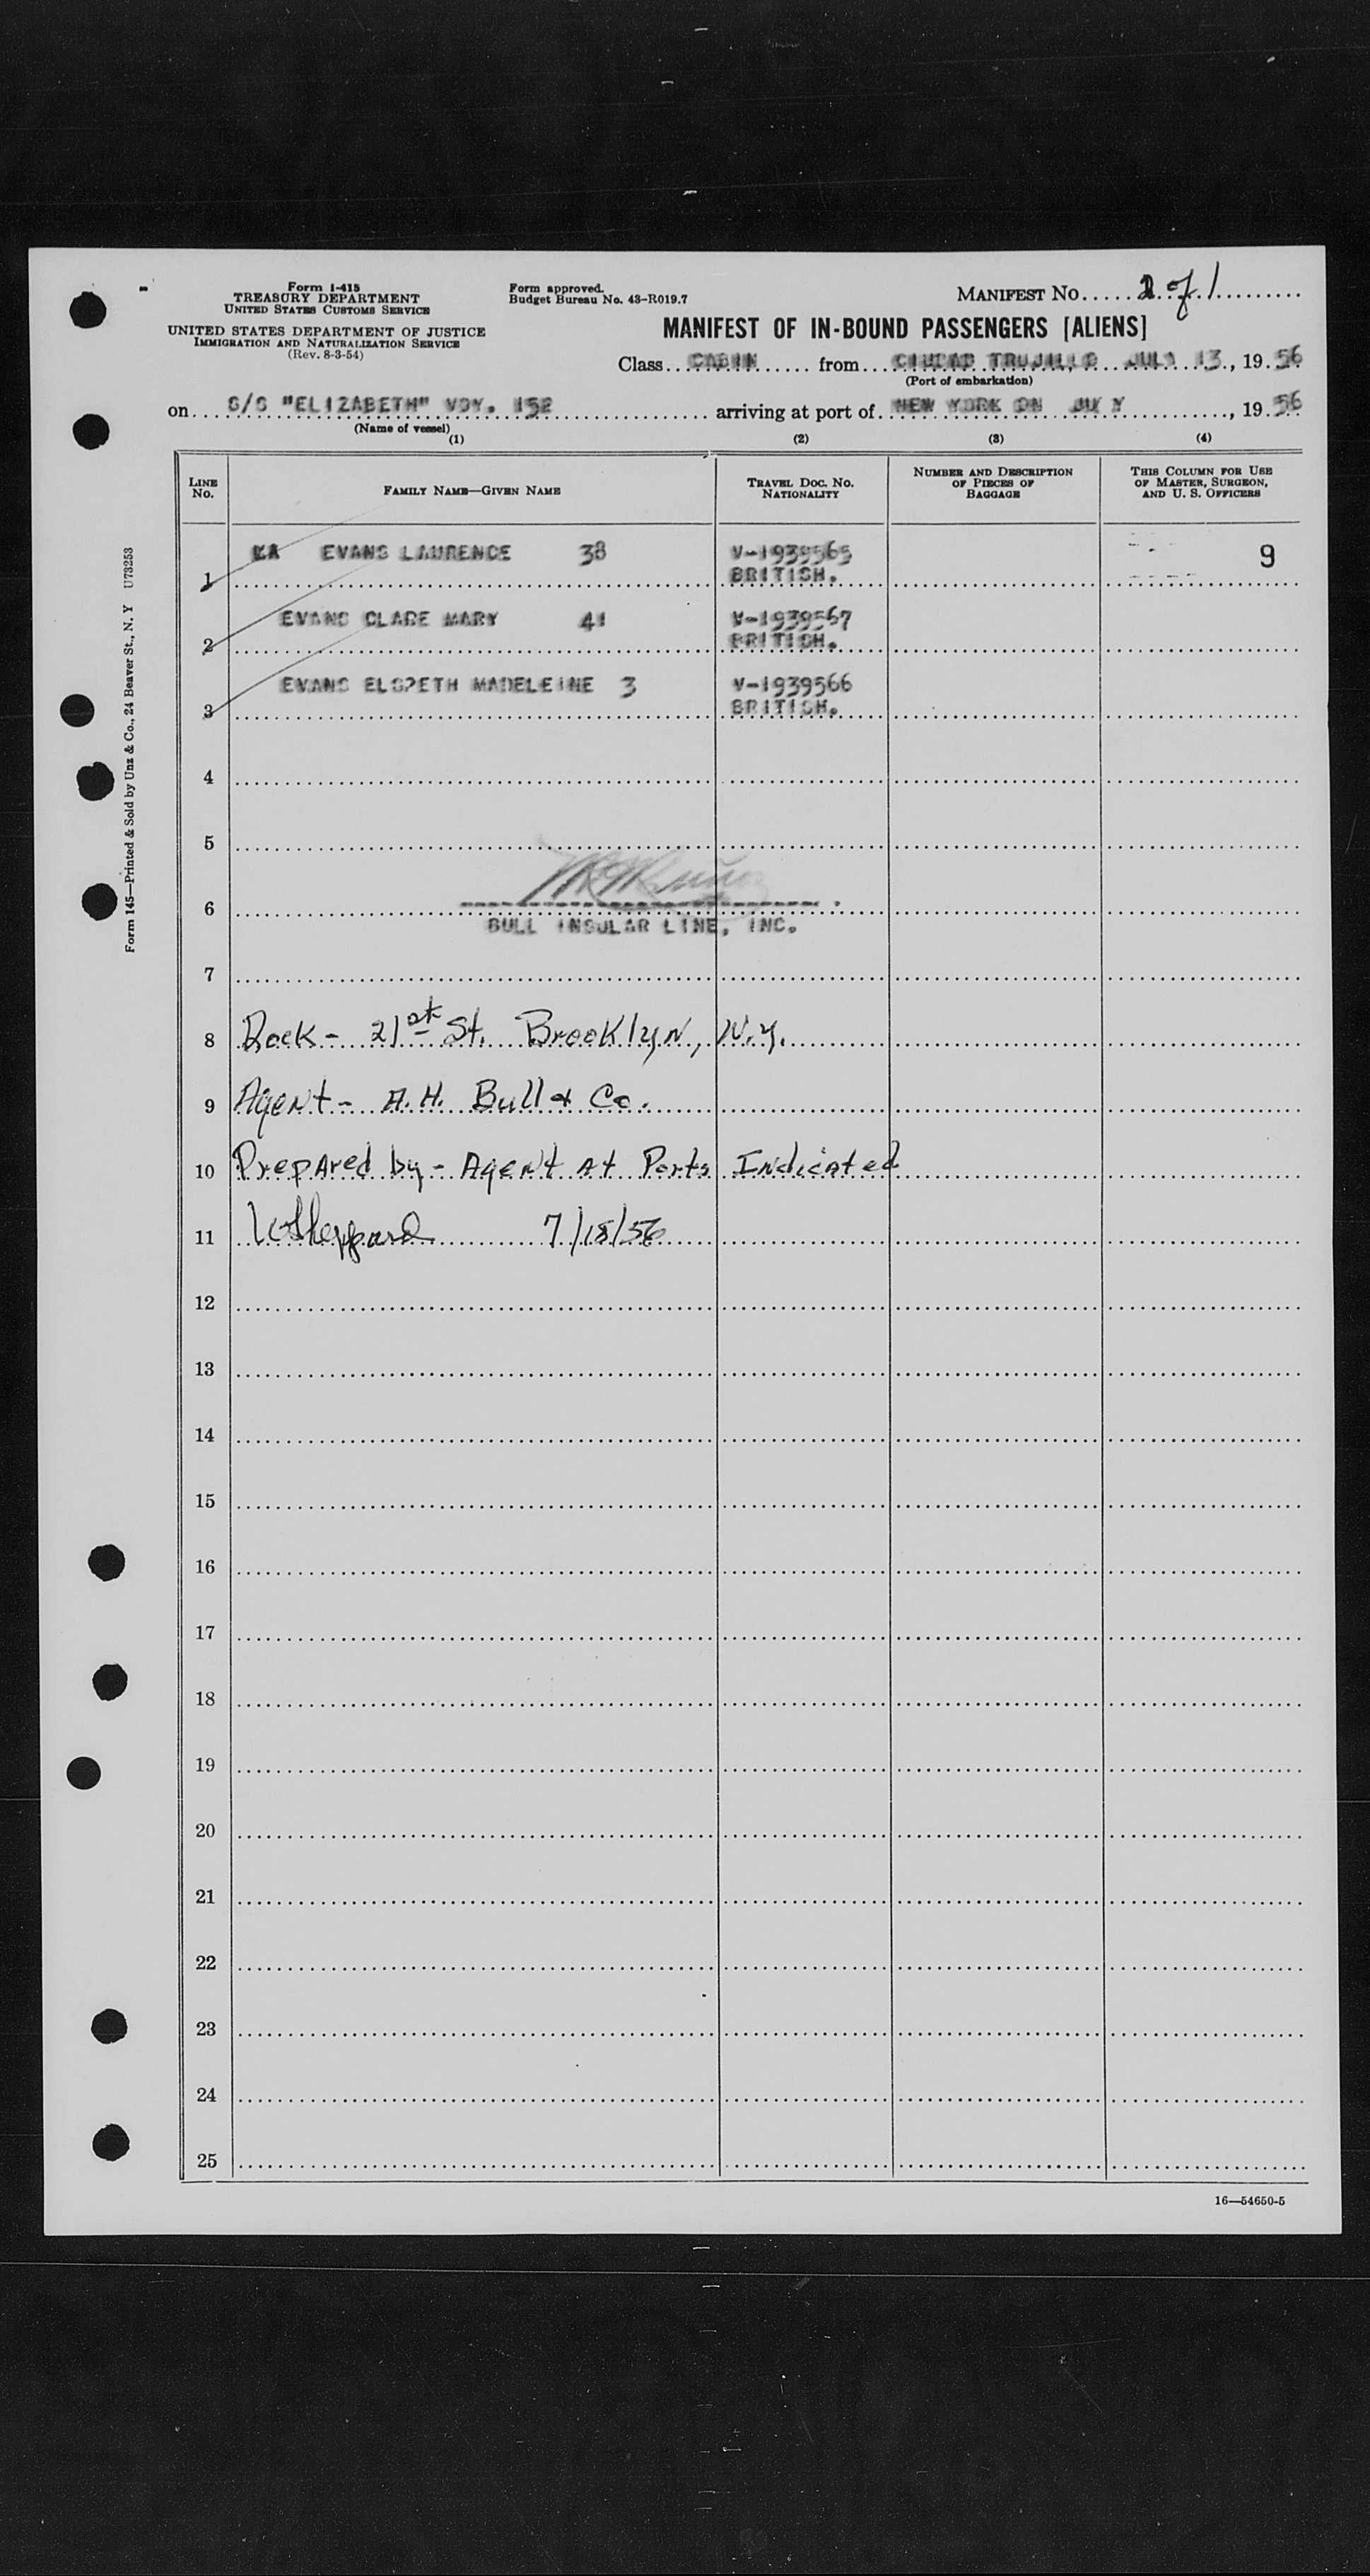 Form I-415
TREASURY DEPARTMENT
UNITED STATES CUSTOMS SERVICE
UNITED STATES DEPARTMENT OF JUSTICE
IMMIGRATION AND NATURALIZATION SERVICE
(Rev. 8-3-54)
Form approved.
Budget Bureau No. 43-R019.7
MANIFEST NO. 1 of 1
MANIFEST OF IN-BOUND PASSENGERS [ALIENS]
Class CABIN from CIUDAD TRUJILLO JULY 13, 19 56
(Port of embarkation)
on S/S "ELIZABETH" VOY. 152 arriving at port of NEW YORK ON JULY, 19 56
(Name of vessel)
(1) (2) (3) (4)
LINE NO. FAMILY NAME—GIVEN NAME TRAVEL DOC. NO. NATIONALITY NUMBER AND DESCRIPTION OF PIECES OF BAGGAGE THIS COLUMN FOR USE OF MASTER, SURGEON, AND U. S. OFFICERS
1 EVANS LAURENCE 38 V-1939565 9
BRITISH.
2 EVANS CLARE MARY 41 V-1939567
BRITISH.
3 EVANS ELSPETH MADELEINE 3 V-1939566
BRITISH.
4
5
6
BULL INSULAR LINE, INC.
7
8 Dock - 21st St. Brooklyn, N.Y.
9 Agent - A.H. Bull & Co.
10 Prepared by - Agent at Ports Indicated
11 Sheppard 7/18/56
12
13
14
15
16
17
18
19
20
21
22
23
24
25
16—54650-5
Form 145—Printed & Sold by Unz & Co., 24 Beaver St., N. Y U73253